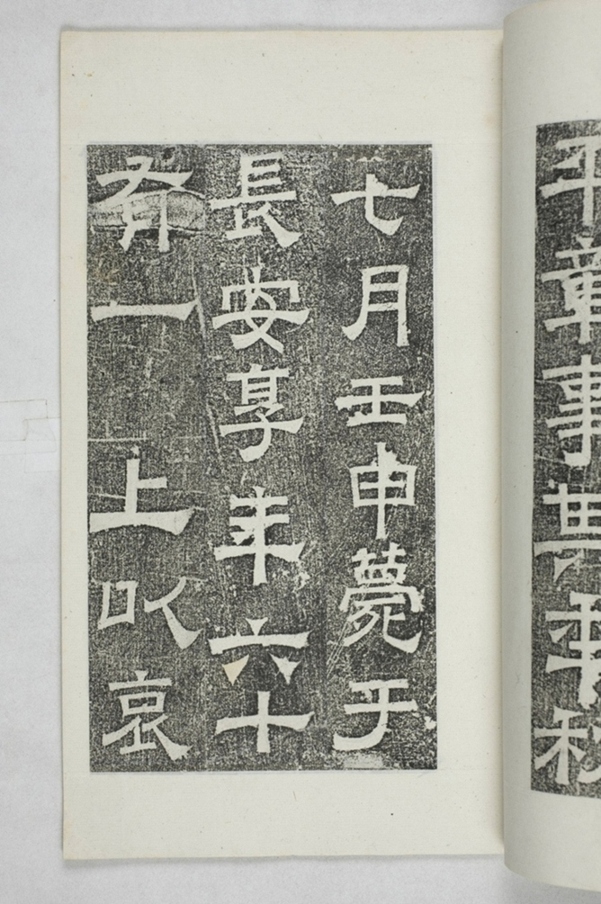 平章事其年秋
七月壬申薨于
長安享年六十
有一 上以哀